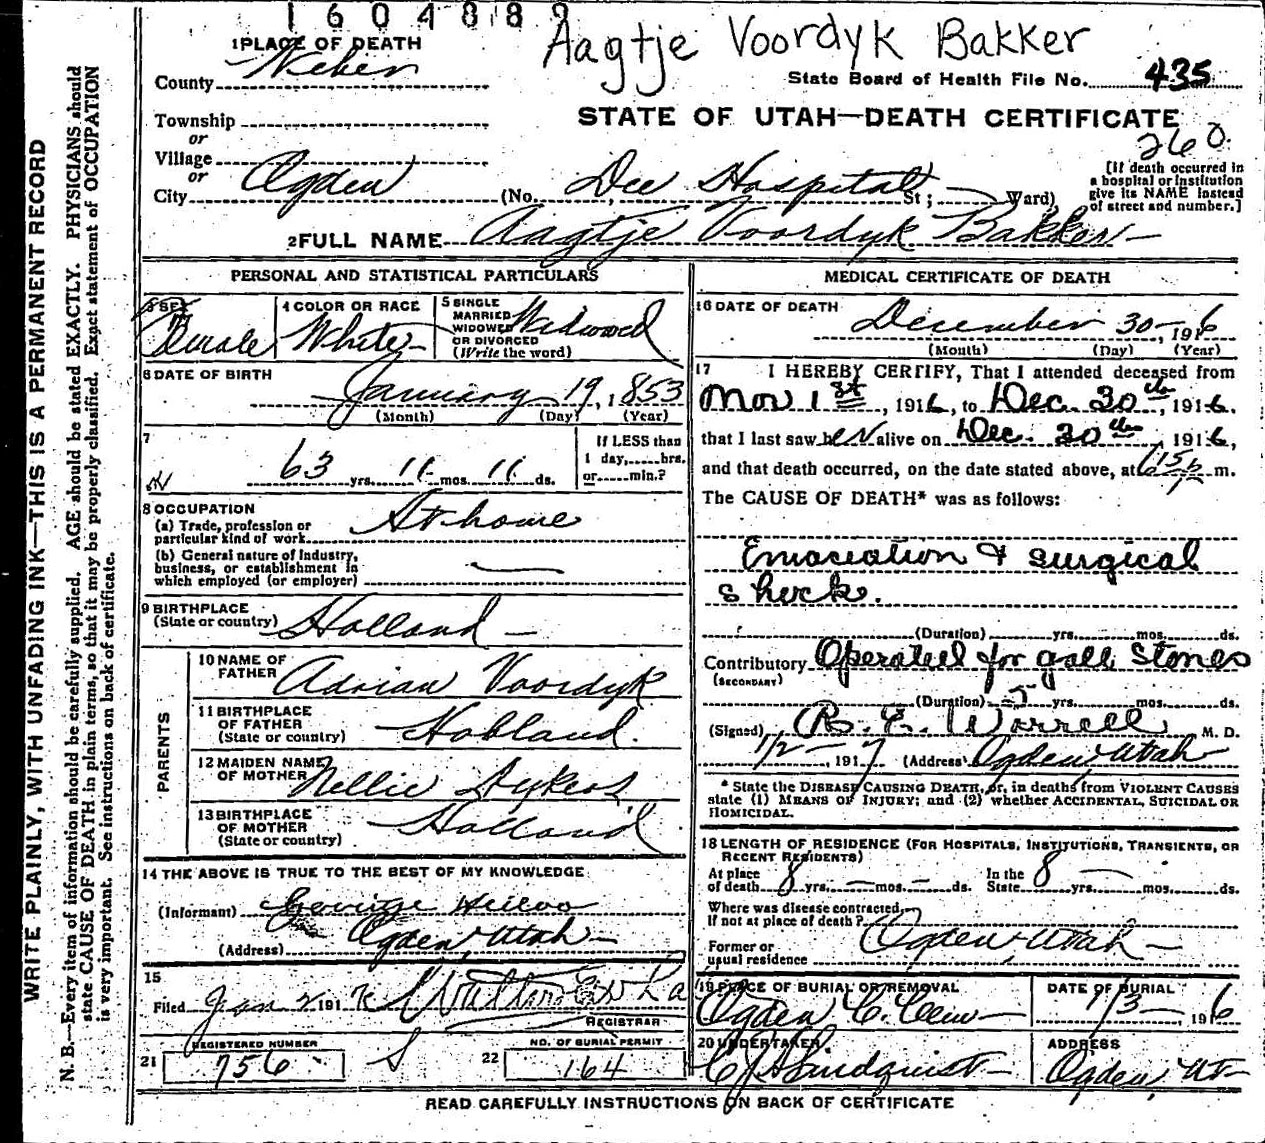 1604889
Aagtje Voordyk Bakker
1 PLACE OF DEATH
County Weber
State Board of Health File No. 435
Township
or
STATE OF UTAH—DEATH CERTIFICATE
260
Village
or
City Ogden (No. Dee Hospital St; Ward)
[If death occurred in
a hospital or institution
give its NAME instead
of street and number.]
2 FULL NAME Aagtje Voordyk Bakker
PERSONAL AND STATISTICAL PARTICULARS
3 SEX
4 COLOR OR RACE White
5 SINGLE
MARRIED
WIDOWED
OR DIVORCED
(Write the word)
Widowed
6 DATE OF BIRTH
January 19, 1853
(Month) (Day) (Year)
7
63 yrs. 11 mos. 11 ds.
If LESS than
1 day,.....hrs.
or.....min.?
8 OCCUPATION
(a) Trade, profession or
particular kind of work At home
(b) General nature of industry,
business, or establishment in
which employed (or employer)
9 BIRTHPLACE
(State or country) Holland
PARENTS
10 NAME OF
FATHER Adrian Voordyk
11 BIRTHPLACE
OF FATHER
(State or country) Holland
12 MAIDEN NAME
OF MOTHER Nellie
13 BIRTHPLACE
OF MOTHER
(State or country) Holland
14 THE ABOVE IS TRUE TO THE BEST OF MY KNOWLEDGE
(Informant) George
(Address) Ogden, Utah
15
Filed Jan 2 191
REGISTRAR
REGISTERED NUMBER
21 756
NO. OF BURIAL PERMIT
22 164
MEDICAL CERTIFICATE OF DEATH
16 DATE OF DEATH
December 30 1916
(Month) (Day) (Year)
17 I HEREBY CERTIFY, That I attended deceased from
Nov 1st, 1916, to Dec. 30th, 1916.
that I last saw her alive on Dec. 30th, 1916,
and that death occurred, on the date stated above, at 6 15 p m.
The CAUSE OF DEATH* was as follows:
Emaciation & surgical
shock.
(Duration) yrs. mos. ds.
Contributory Operated for gall stones
(SECONDARY)
(Duration) yrs. mos. ds.
(Signed) Worrell M. D.
1/2 1917 (Address) Ogden, Utah
* State the DISEASE CAUSING DEATH, or, in deaths from VIOLENT CAUSES
state (1) MEANS OF INJURY; and (2) whether ACCIDENTAL, SUICIDAL OR
HOMICIDAL.
18 LENGTH OF RESIDENCE (FOR HOSPITALS, INSTITUTIONS, TRANSIENTS, OR
RECENT RESIDENTS)
At place
of death 8 yrs. mos. ds.
In the
State 8 yrs. mos. ds.
Where was disease contracted,
If not at place of death?
Former or
usual residence Ogden, Utah
19 PLACE OF BURIAL OR REMOVAL
Ogden C. Cem
DATE OF BURIAL
1/3 1916
20 UNDERTAKER
Lindquist
ADDRESS
Ogden, Ut
READ CAREFULLY INSTRUCTIONS ON BACK OF CERTIFICATE
WRITE PLAINLY, WITH UNFADING INK—THIS IS A PERMANENT RECORD
N. B.—Every item of information should be carefully supplied. AGE should be stated EXACTLY. PHYSICIANS should
state CAUSE OF DEATH in plain terms, so that it may be properly classified. Exact statement of OCCUPATION
is very important. See instructions on back of certificate.